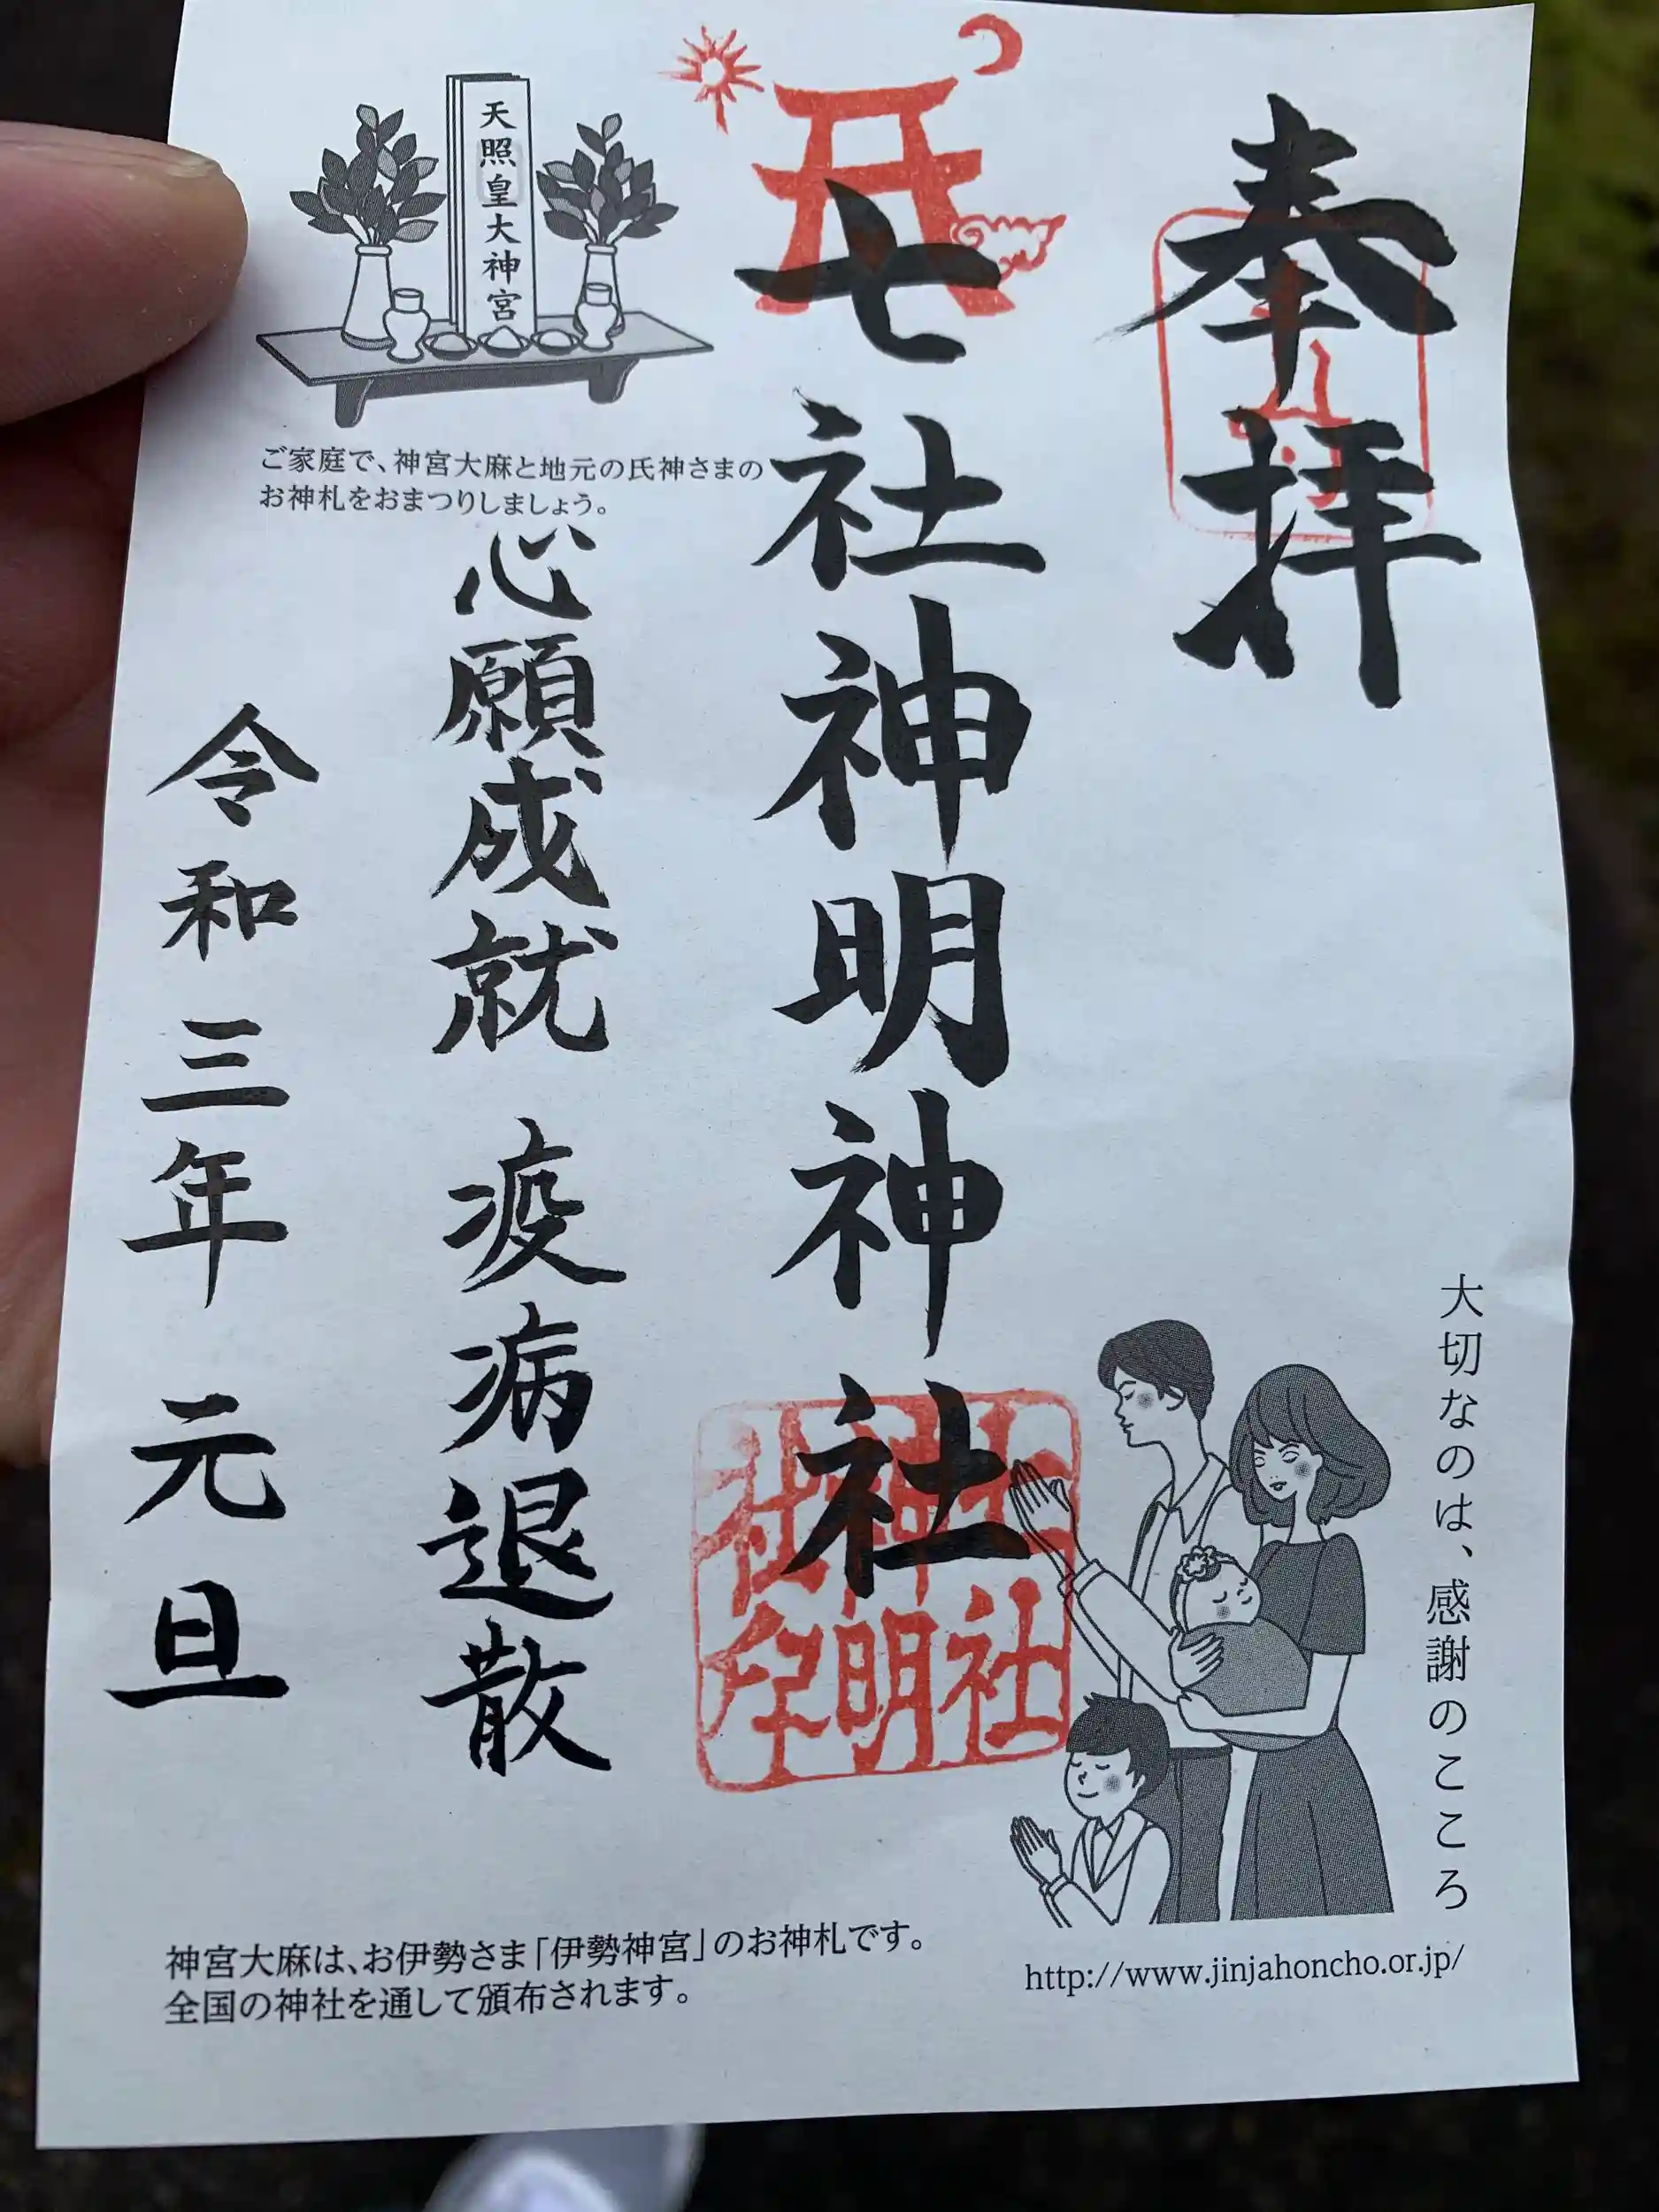 奉拝
七社神明神社
天照皇大神宮
ご家庭で、神宮大麻と地元の氏神さまの
お神札をおまつりしましょう。
心願成就 疫病退散
令和三年 元旦
大切なのは、感謝のこころ
神宮大麻は、お伊勢さま「伊勢神宮」のお神札です。
全国の神社を通して頒布されます。
http://www.jinjahoncho.or.jp/